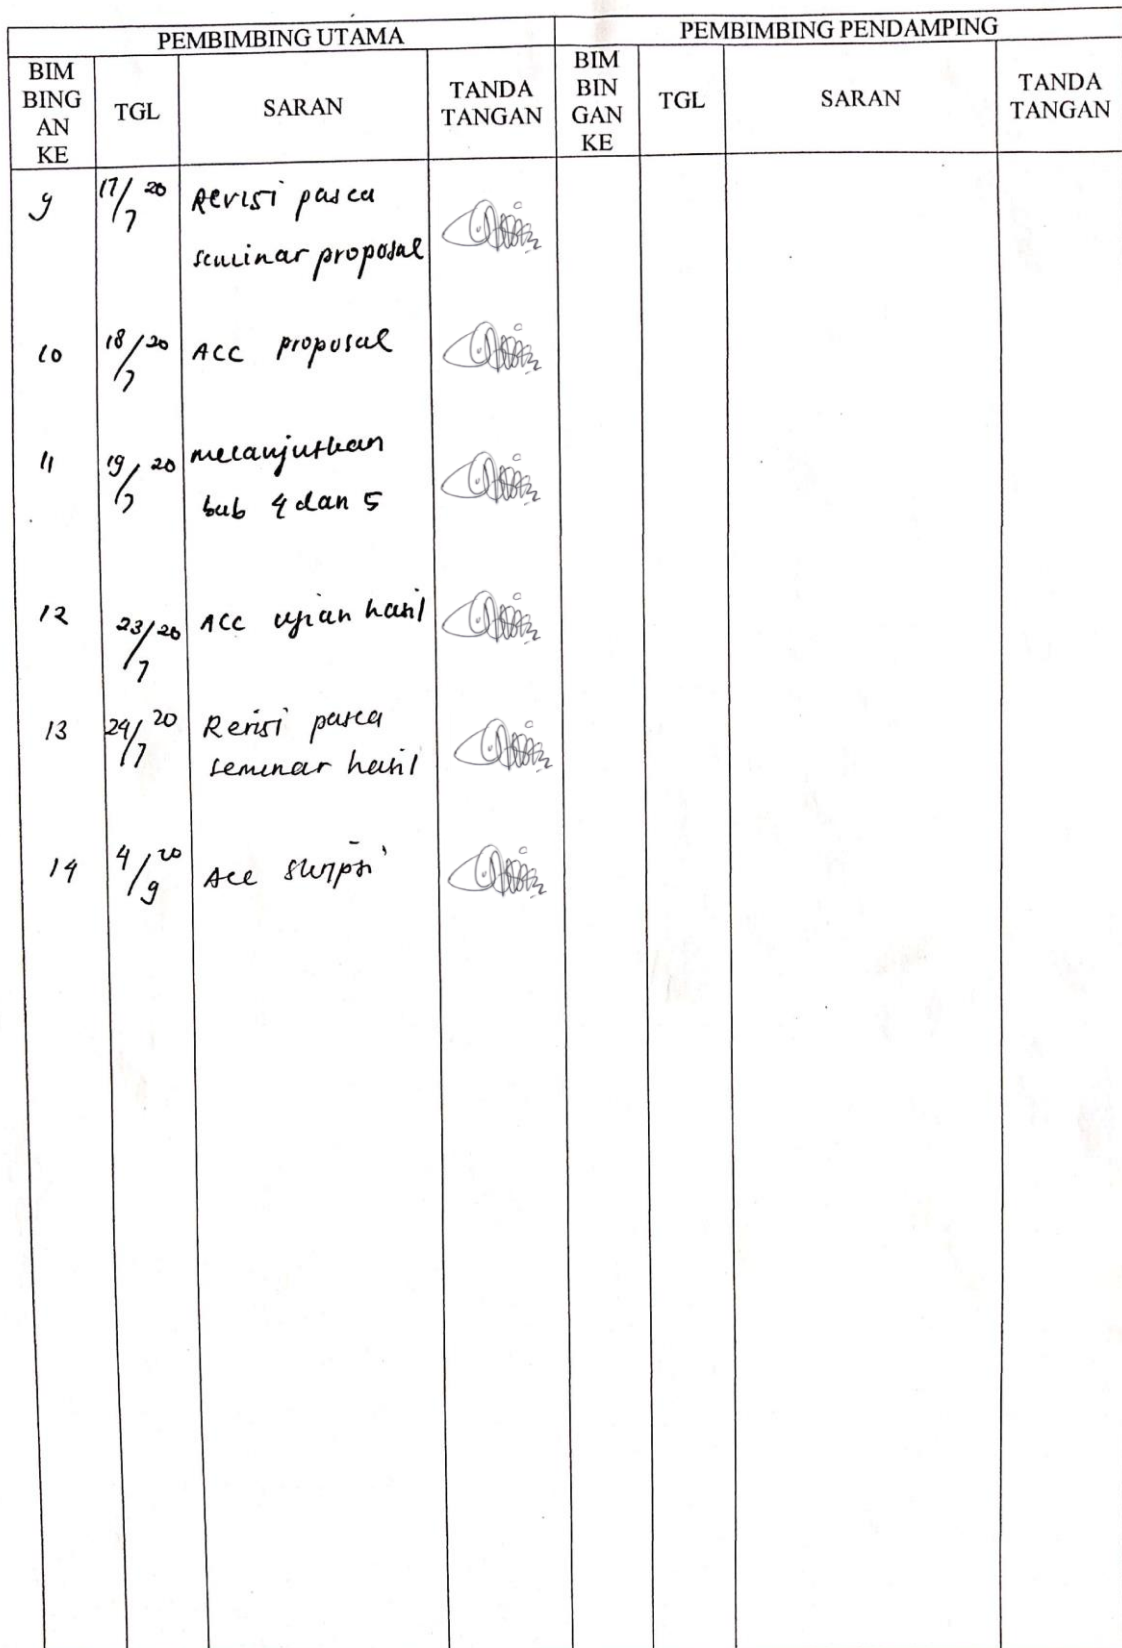 PEMBIMBING UTAMA
PEMBIMBING PENDAMPING
BIM
BING
AN
KE
TGL
SARAN
TANDA
TANGAN
BIM
BIN
GAN
KE
TGL
SARAN
TANDA
TANGAN
9 17/7 20 Revisi pasca
seminar proposal
10 18/7 20 ACC proposal
11 19/7 20 melanjutkan
bab 4 dan 5
12 23/7 20 ACC ujian hasil
13 24/7 20 Revisi pasca
seminar hasil
14 4/9 20 Acc skripsi